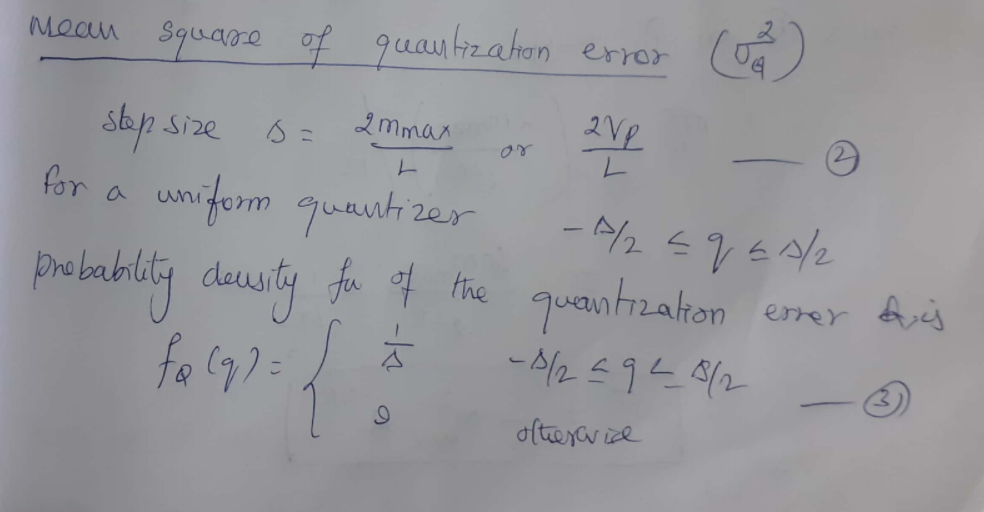 Mean square of quantization error (σ_Q^2)
step size Δ = 2mmax/L or 2Vp/L — ②
for a uniform quantizer -Δ/2 ≤ q ≤ Δ/2
probability density fn of the quantization error is
fQ(q) = { 1/Δ -Δ/2 ≤ q ≤ Δ/2
0 otherwise — ③